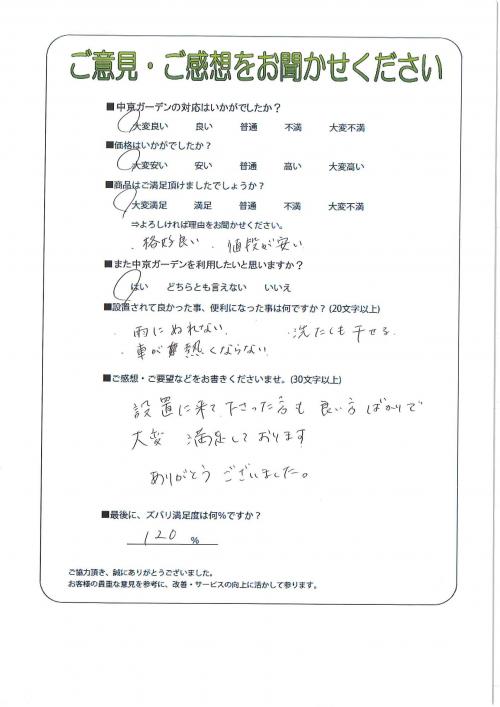 ご意見・ご感想をお聞かせください
■中京ガーデンの対応はいかがでしたか？
大変良い 良い 普通 不満 大変不満
■価格はいかがでしたか？
大変安い 安い 普通 高い 大変高い
■商品はご満足頂けましたでしょうか？
大変満足 満足 普通 不満 大変不満
⇒よろしければ理由をお聞かせください。
・格好良い ・値段が安い
■また中京ガーデンを利用したいと思いますか？
はい どちらとも言えない いいえ
■設置されて良かった事、便利になった事は何ですか？(20文字以上)
・雨にぬれない ・洗たくも干せる
・車が熱くならない
■ご感想・ご要望などをお書きくださいませ。(30文字以上)
設置に来て下さった方も良い方ばかりで
大変 満足しております
ありがとうございました。
■最後に、ズバリ満足度は何%ですか？
120 %
ご協力頂き、誠にありがとうございました。
お客様の貴重な意見を参考に、改善・サービスの向上に活かして参ります。